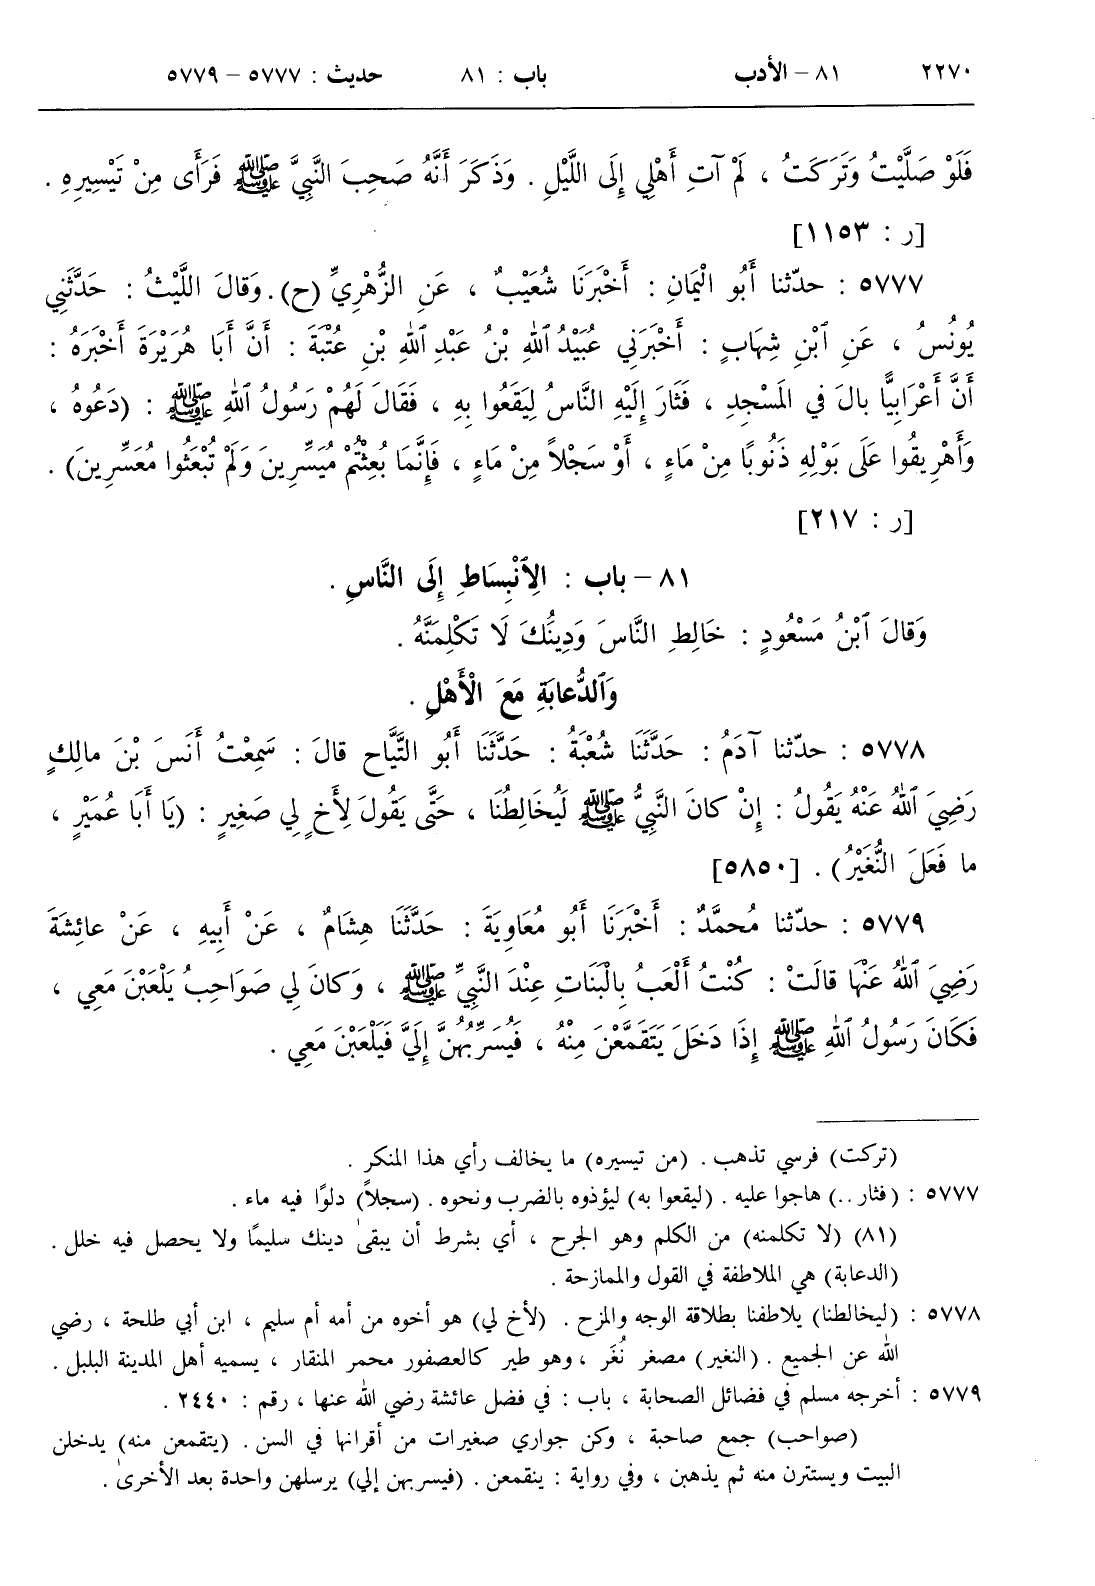 ٢٢٧٠ ٨١ – الأدب باب : ٨١ حديث : ٥٧٧٧ – ٥٧٧٩
فَلَوْ صَلَّيْتُ وَتَرَكَتُ ، لَمْ آتِ أَهْلِي إِلَى اللَّيْلِ . وَذَكَرَ أَنَّهُ صَحِبَ النَّبِيَّ ﷺ فَرَأَى مِنْ تَيْسِيرِهِ .
[ر : ١١٥٣]
٥٧٧٧ : حدّثنا أَبُو الْيَمانِ : أَخْبَرَنَا شُعَيْبٌ ، عَنِ الزُّهْرِيِّ (ح) . وَقالَ اللَّيْثُ : حَدَّثَنِي
يُونُسُ ، عَنِ ٱبْنِ شِهَابٍ : أَخْبَرَنِي عُبَيْدُ ٱللهِ بْنُ عَبْدِ ٱللهِ بْنِ عُتْبَةَ : أَنَّ أَبَا هُرَيْرَةَ أَخْبَرَهُ :
أَنَّ أَعْرَابِيًّا بالَ في المَسْجِدِ ، فَثَارَ إِلَيْهِ النَّاسُ لِيَقَعُوا بِهِ ، فَقَالَ لَهُمْ رَسُولُ ٱللهِ ﷺ : (دَعُوهُ ،
وَأَهْرِيقُوا عَلَى بَوْلِهِ ذَنُوبًا مِنْ مَاءٍ ، أَوْ سَجْلاً مِنْ مَاءٍ ، فَإِنَّمَا بُعِثْتُمْ مُيَسِّرِينَ وَلَمْ تُبْعَثُوا مُعَسِّرِينَ) .
[ر : ٢١٧]
٨١ – باب : الِٱنْبِسَاطِ إِلَى النَّاسِ .
وَقالَ ٱبْنُ مَسْعُودٍ : خَالِطِ النَّاسَ وَدِينَُكَ لَا تَكْلِمَنَّهُ .
وَٱلدُّعابَةِ مَعَ الْأَهْلِ .
٥٧٧٨ : حدّثنا آدَمُ : حَدَّثَنَا شُعْبَةُ : حَدَّثَنَا أَبُو التَّيَّاحِ قالَ : سَمِعْتُ أَنَسَ بْنَ مالِكٍ
رَضِيَ ٱللهُ عَنْهُ يَقُولُ : إِنْ كانَ النَّبِيُّ ﷺ لَيُخَالِطُنَا ، حَتَّى يَقُولَ لِأَخٍ لِي صَغِيرٍ : (يَا أَبَا عُمَيْرٍ ،
ما فَعَلَ النُّغَيْرُ) . [٥٨٥٠]
٥٧٧٩ : حدّثنا مُحمَّدٌ : أَخْبَرَنَا أَبُو مُعَاوِيَةَ : حَدَّثَنَا هِشَامٌ ، عَنْ أَبِيهِ ، عَنْ عائِشَةَ
رَضِيَ ٱللهُ عَنْهَا قالَتْ : كُنْتُ أَلْعَبُ بِالْبَنَاتِ عِنْدَ النَّبِيِّ ﷺ ، وَكانَ لِي صَوَاحِبُ يَلْعَبْنَ مَعِي ،
فَكَانَ رَسُولُ ٱللهِ ﷺ إِذَا دَخَلَ يَتَقَمَّعْنَ مِنْهُ ، فَيُسَرِّبُهُنَّ إِلَيَّ فَيَلْعَبْنَ مَعِي .
(تركت) فرسي تذهب . (من تيسيره) ما يخالف رأي هذا المنكر .
٥٧٧٧ : (فثار ..) هاجوا عليه . (ليقعوا به) ليؤذوه بالضرب ونحوه . (سجلاً) دلوًا فيه ماء .
(٨١) (لا تكلمنه) من الكلم وهو الجرح ، أي بشرط أن يبقىٰ دينك سليمًا ولا يحصل فيه خلل .
(الدعابة) هي الملاطفة في القول والممازحة .
٥٧٧٨ : (ليخالطنا) يلاطفنا بطلاقة الوجه والمزح . (لأخ لي) هو أخوه من أمه أم سليم ، ابن أبي طلحة ، رضي
الله عن الجميع . (النغير) مصغر نُغَر ، وهو طير كالعصفور محمر المنقار ، يسميه أهل المدينة البلبل .
٥٧٧٩ : أخرجه مسلم في فضائل الصحابة ، باب : في فضل عائشة رضي الله عنها ، رقم : ٢٤٤٠ .
(صواحب) جمع صاحبة ، وكن جواري صغيرات من أقرانها في السن . (يتقمعن منه) يدخلن
البيت ويستترن منه ثم يذهبن ، وفي رواية : ينقمعن . (فيسربهن إلي) يرسلهن واحدة بعد الأخرىٰ .